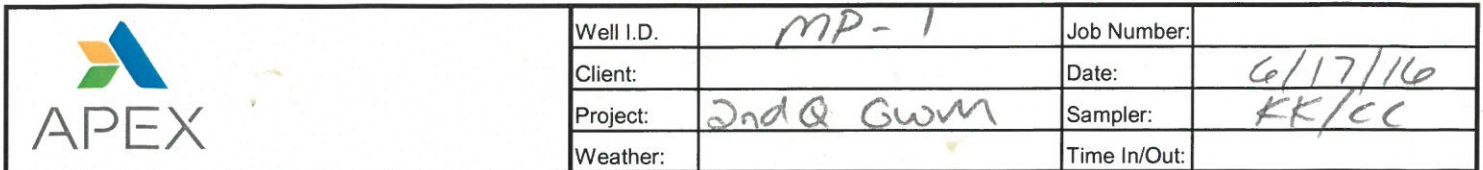 Well I.D. MP-1 Job Number:
Client: Date: 6/17/16
APEX Project: 2nd Q GWM Sampler: KK/CC
Weather: Time In/Out: